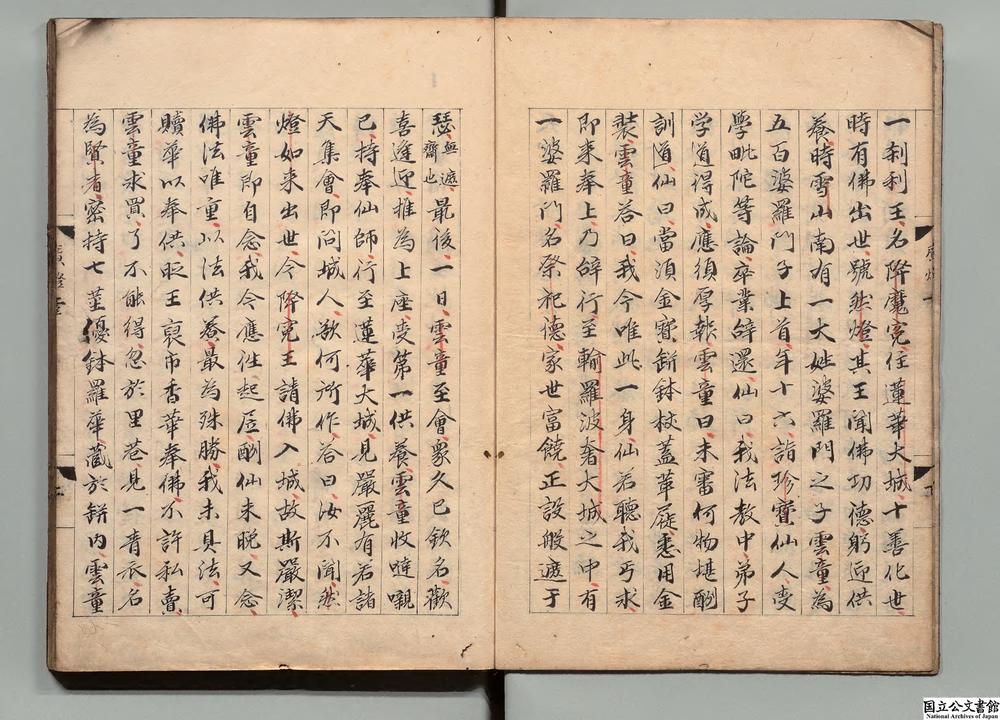 一刹利王名降魔寃住蓮華大城十善化世
時有佛出世號然燈其王聞佛功德躬迎供
養時雪山南有一大姓婆羅門之子雲童為
五百婆羅門子上首年十六詣珍寶仙人受
學毗陀等論卒業辝還仙曰我法教中弟子
学道得成應須厚報雲童曰未審何物堪酬
訓道仙曰當須金寶缾鉢杖蓋革屣悉用金
裝雲童荅曰我今唯此一身仙若聽我丐求
即来奉上乃辝行至輸羅波奢大城之中有
一婆羅門名祭祀德家世富饒正設般遮于
瑟無遮齋也最後一日雲童至會衆久已欽名歡
喜逢迎推為上座受第一供養雲童收噠嚫
已持奉仙師行至蓮華大城見嚴麗有若諸
天集會即問城人欲何所作荅曰汝不聞然
燈如来出世今降寃王請佛入城故斯嚴潔
雲童即自念我今應性起居酬仙未晚又念
佛法唯重以法供養最為殊勝我未具法可
贖華以奉供昰王裒市香華奉佛不許私賣
雲童求買了不能得忽於里巷見一青衣名
為賢者密持七莖優鉢羅華藏於缾內雲童
廣燈